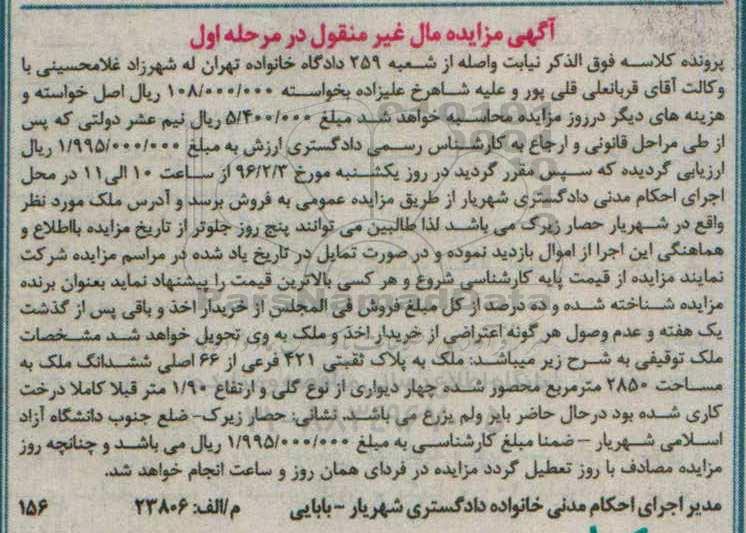 آگهی مزایده مال غیر منقول در مرحله اول
پرونده کلاسه فوق الذکر نیابت واصله از شعبه ۲۵۹ دادگاه خانواده تهران له شهرزاد غلامحسینی با
وکالت آقای قربانعلی قلی پور و علیه شاهرخ علیزاده بخواسته ۱۰۸/۰۰۰/۰۰۰ ریال اصل خواسته و
هزینه های دیگر درروز مزایده محاسبه خواهد شد مبلغ ۵/۴۰۰/۰۰۰ ریال نیم عشر دولتی که پس
از طی مراحل قانونی و ارجاع به کارشناس رسمی دادگستری ارزش به مبلغ ۱/۹۹۵/۰۰۰/۰۰۰ ریال
ارزیابی گردیده که سپس مقرر گردید در روز یکشنبه مورخ ۹۶/۲/۳ از ساعت ۱۰ الی۱۱ در محل
اجرای احکام مدنی دادگستری شهریار از طریق مزایده عمومی به فروش برسد و آدرس ملک مورد نظر
واقع در شهریار حصار زیرک می باشد لذا طالبین می توانند پنج روز جلوتر از تاریخ مزایده بااطلاع و
هماهنگی این اجرا از اموال بازدید نموده و در صورت تمایل در تاریخ یاد شده در مراسم مزایده شرکت
نمایند مزایده از قیمت پایه کارشناسی شروع و هر کسی بالاترین قیمت را پیشنهاد نماید بعنوان برنده
مزایده شناخته شده و ده درصد از کل مبلغ فروش فی المجلس از خریدار اخذ و باقی پس از گذشت
یک هفته و عدم وصول هر گونه اعتراضی از خریدار اخذ و ملک به وی تحویل خواهد شد مشخصات
ملک توقیفی به شرح زیر میباشد: ملک به پلاک ثبتی ۴۲۱ فرعی از ۶۶ اصلی ششدانگ ملک به
مساحت ۲۸۵۰ مترمربع محصور شده چهار دیواری از نوع گلی و ارتفاع ۱/۹۰ متر قبلا کاملا درخت
کاری شده بود درحال حاضر بایر ولم یزرع می باشد نشانی: حصار زیرک- ضلع جنوب دانشگاه آزاد
اسلامی شهریار – ضمنا مبلغ کارشناسی به مبلغ ۱/۹۹۵/۰۰۰/۰۰۰ ریال می باشد و چنانچه روز
مزایده مصادف با روز تعطیل گردد مزایده در فردای همان روز و ساعت انجام خواهد شد.
مدیر اجرای احکام مدنی خانواده دادگستری شهریار – بابایی م/الف: ۲۳۸۰۶ ۱۵۶
ParsNamadData